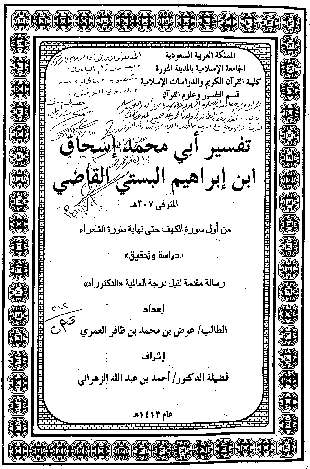 المملكة العربية السعودية
الجامعة الإسلامية بالمدينة المنورة
كلية القرآن الكريم والدراسات الإسلامية
قسم التفسير وعلوم القرآن
تفسير أبي محمد إسحاق
ابن إبراهيم البستي القاضي
المتوفى ٣٠٧هـ
من أول سورة الكهف حتى نهاية سورة الشعراء
«دراسة وتحقيق»
رسالة مقدمة لنيل درجة العالمية «الدكتوراه»
إعداد
الطالب/ عوض بن محمد بن ظافر العمري
إشراف
فضيلة الدكتور/ أحمد بن عبد الله الزهراني
عام ١٤١٣هـ